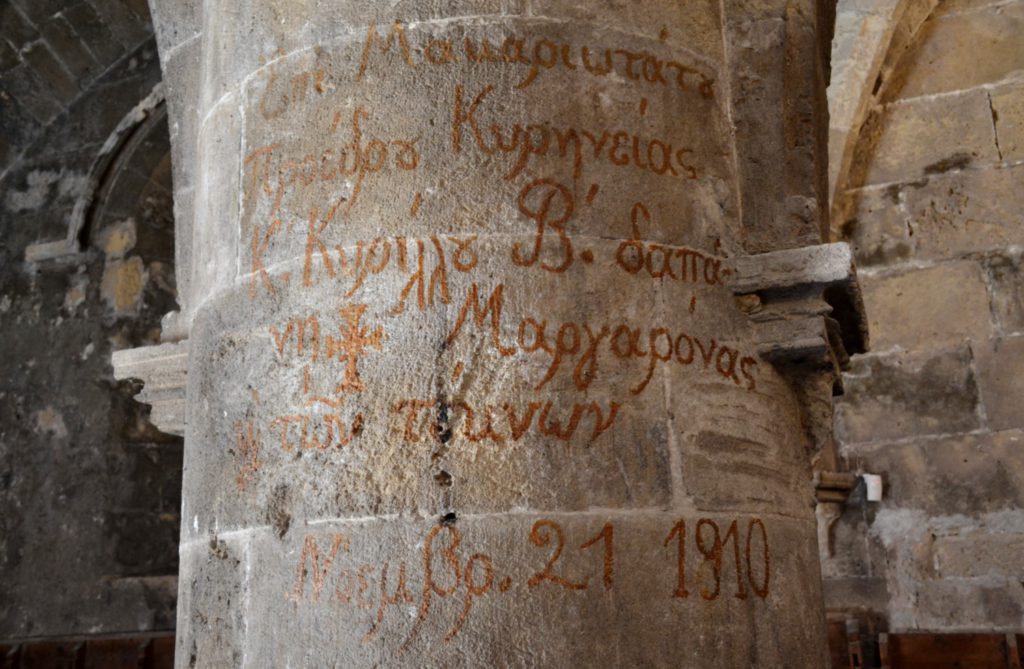 Ἐπὶ Μακαριωτάτου
Προέδρου Κυρηνείας
Κ. Κυρίλλου Β΄. δαπά-
νῃ Μαργαρόνας
τῶν τέκνων
Νοεμβρ. 21 1910